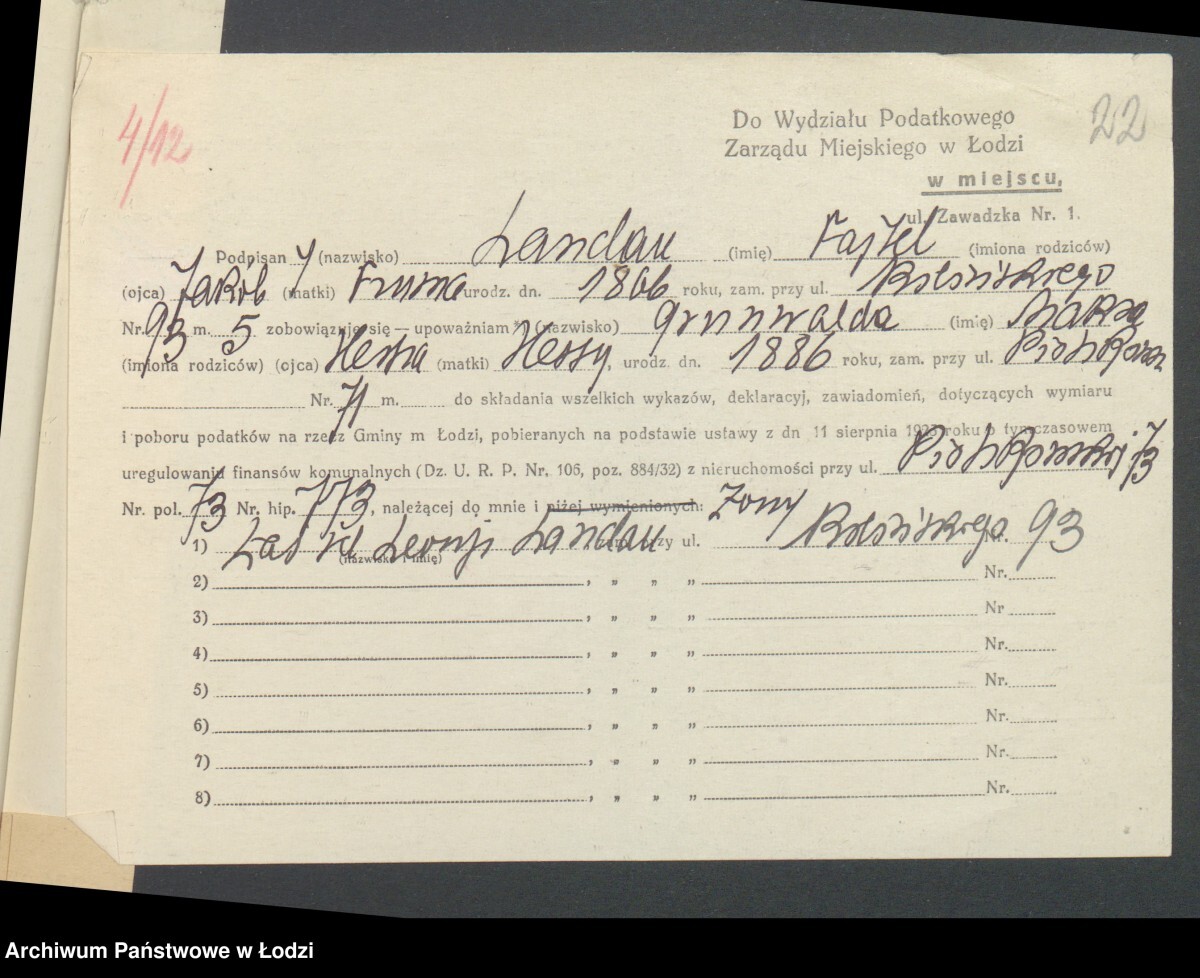 4/12
22
Do Wydziału Podatkowego
Zarządu Miejskiego w Łodzi
w miejscu,
ul. Zawadzka Nr. 1.
Podpisan y (nazwisko) Landau (imię) Fajtel (imiona rodziców)
(ojca) Jakób (matki) Fruma urodz. dn. 1866 roku, zam. przy ul.
Nr. 93 m. 5 zobowiązuję się — upoważniam *) (nazwisko) Grunwalda (imię)
(imiona rodziców) (ojca) (matki) Hessy, urodz. dn. 1886 roku, zam. przy ul.
Nr. 71 m. do składania wszelkich wykazów, deklaracyj, zawiadomień, dotyczących wymiaru
i poboru podatków na rzecz Gminy m Łodzi, pobieranych na podstawie ustawy z dn 11 sierpnia 1923 roku o tymczasowem
uregulowaniu finansów komunalnych (Dz. U. R. P. Nr. 106, poz. 884/32) z nieruchomości przy ul. Piotrkowskiej 73
Nr. pol. 73 Nr. hip. 773, należącej do mnie i niżej wymienionych: żony
1) Leonji Landau zam. przy ul. Nr. 93
(nazwisko i imię)
2) , „ „ „ Nr.
3) , „ „ „ Nr
4) , „ „ „ Nr.
5) , „ „ „ Nr.
6) , „ „ „ Nr.
7) , „ „ „ Nr.
8) , „ „ „ Nr.
Archiwum Państwowe w Łodzi